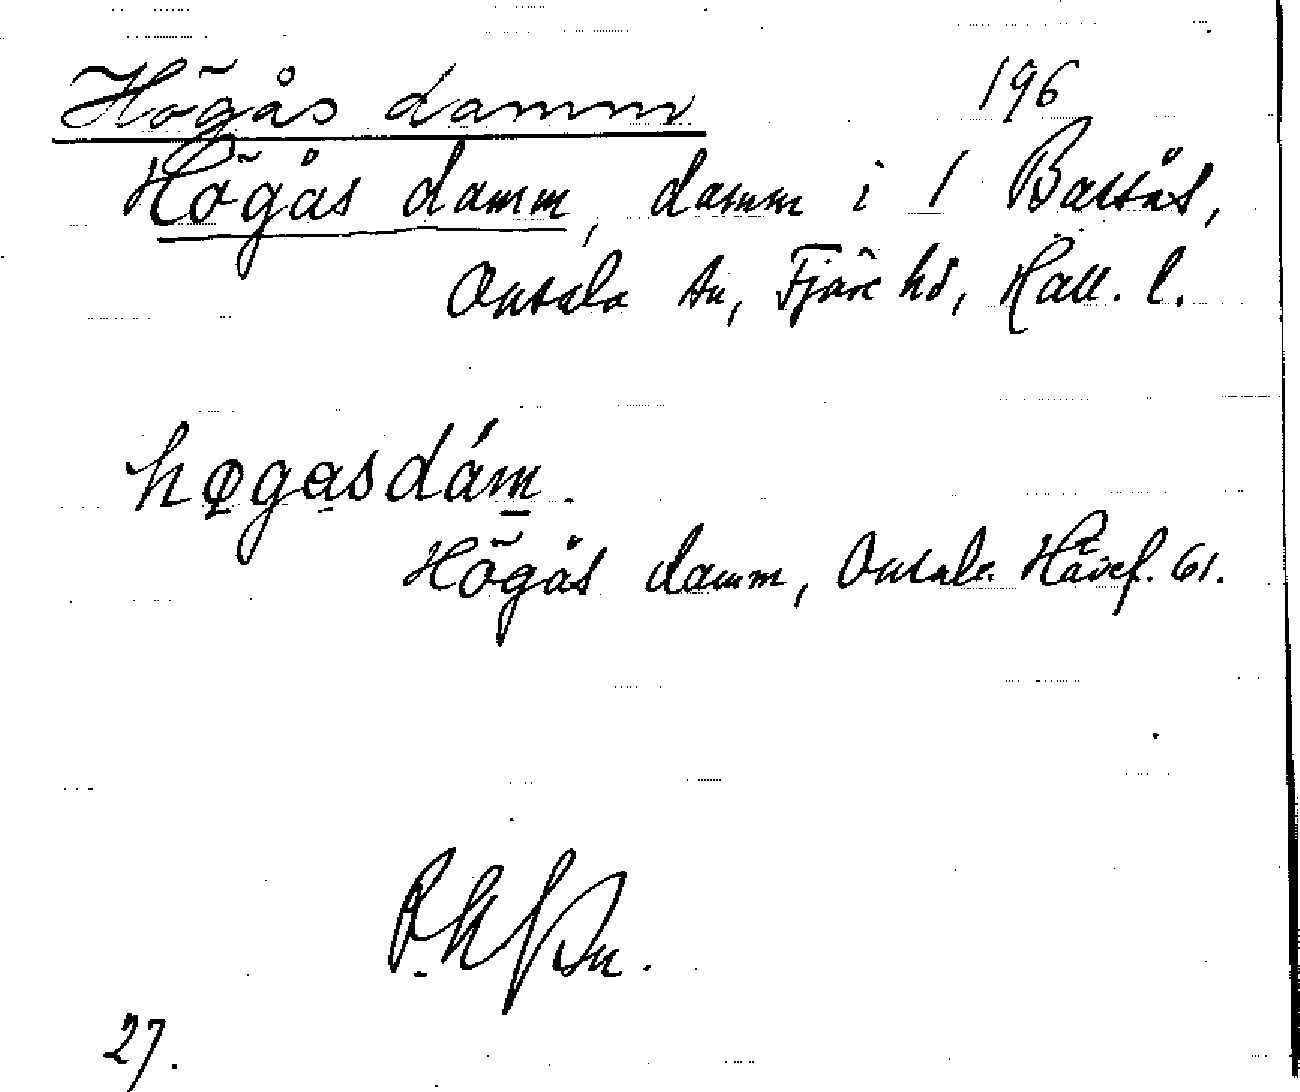 Högås damm 196
Högås damm, damm i 1 Bassås,
Onsala sn, Fjäre hd, Hall. l.
høgasdám.
Högås damm, Onsala Häref. 61.
27.